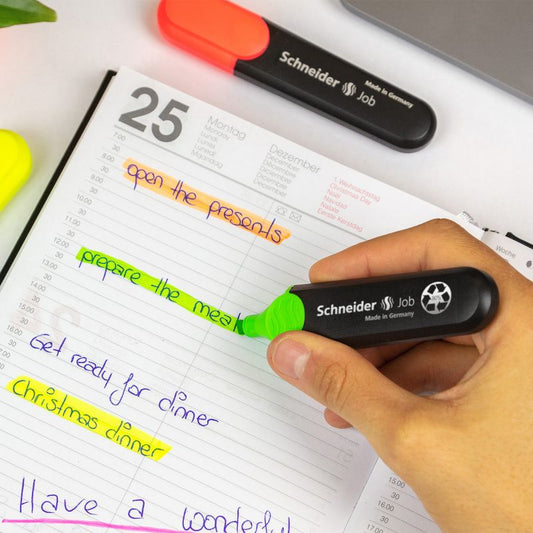 Schneider Job
Made in Germany
25
Montag
Monday
Lundi
Lunes
Maandag
Dezember
December
Décembre
Dicembre
Diciembre
December
1. Weihnachtstag
Christmas Day
Noël
Navidad
Natale
Eerste Kerstdag
Woche
7.00
30
8.00
30
9.00
30
10.00
30
11.00
30
12.00
30
13.00
30
14.00
30
15.00
30
16.00
30
17.00
30
open the presents
prepare the meal
Get ready for dinner
Christmas dinner
Have a wonderful
Schneider Job
Made in Germany
15.00
30
16.00
30
17.00
30
18.00